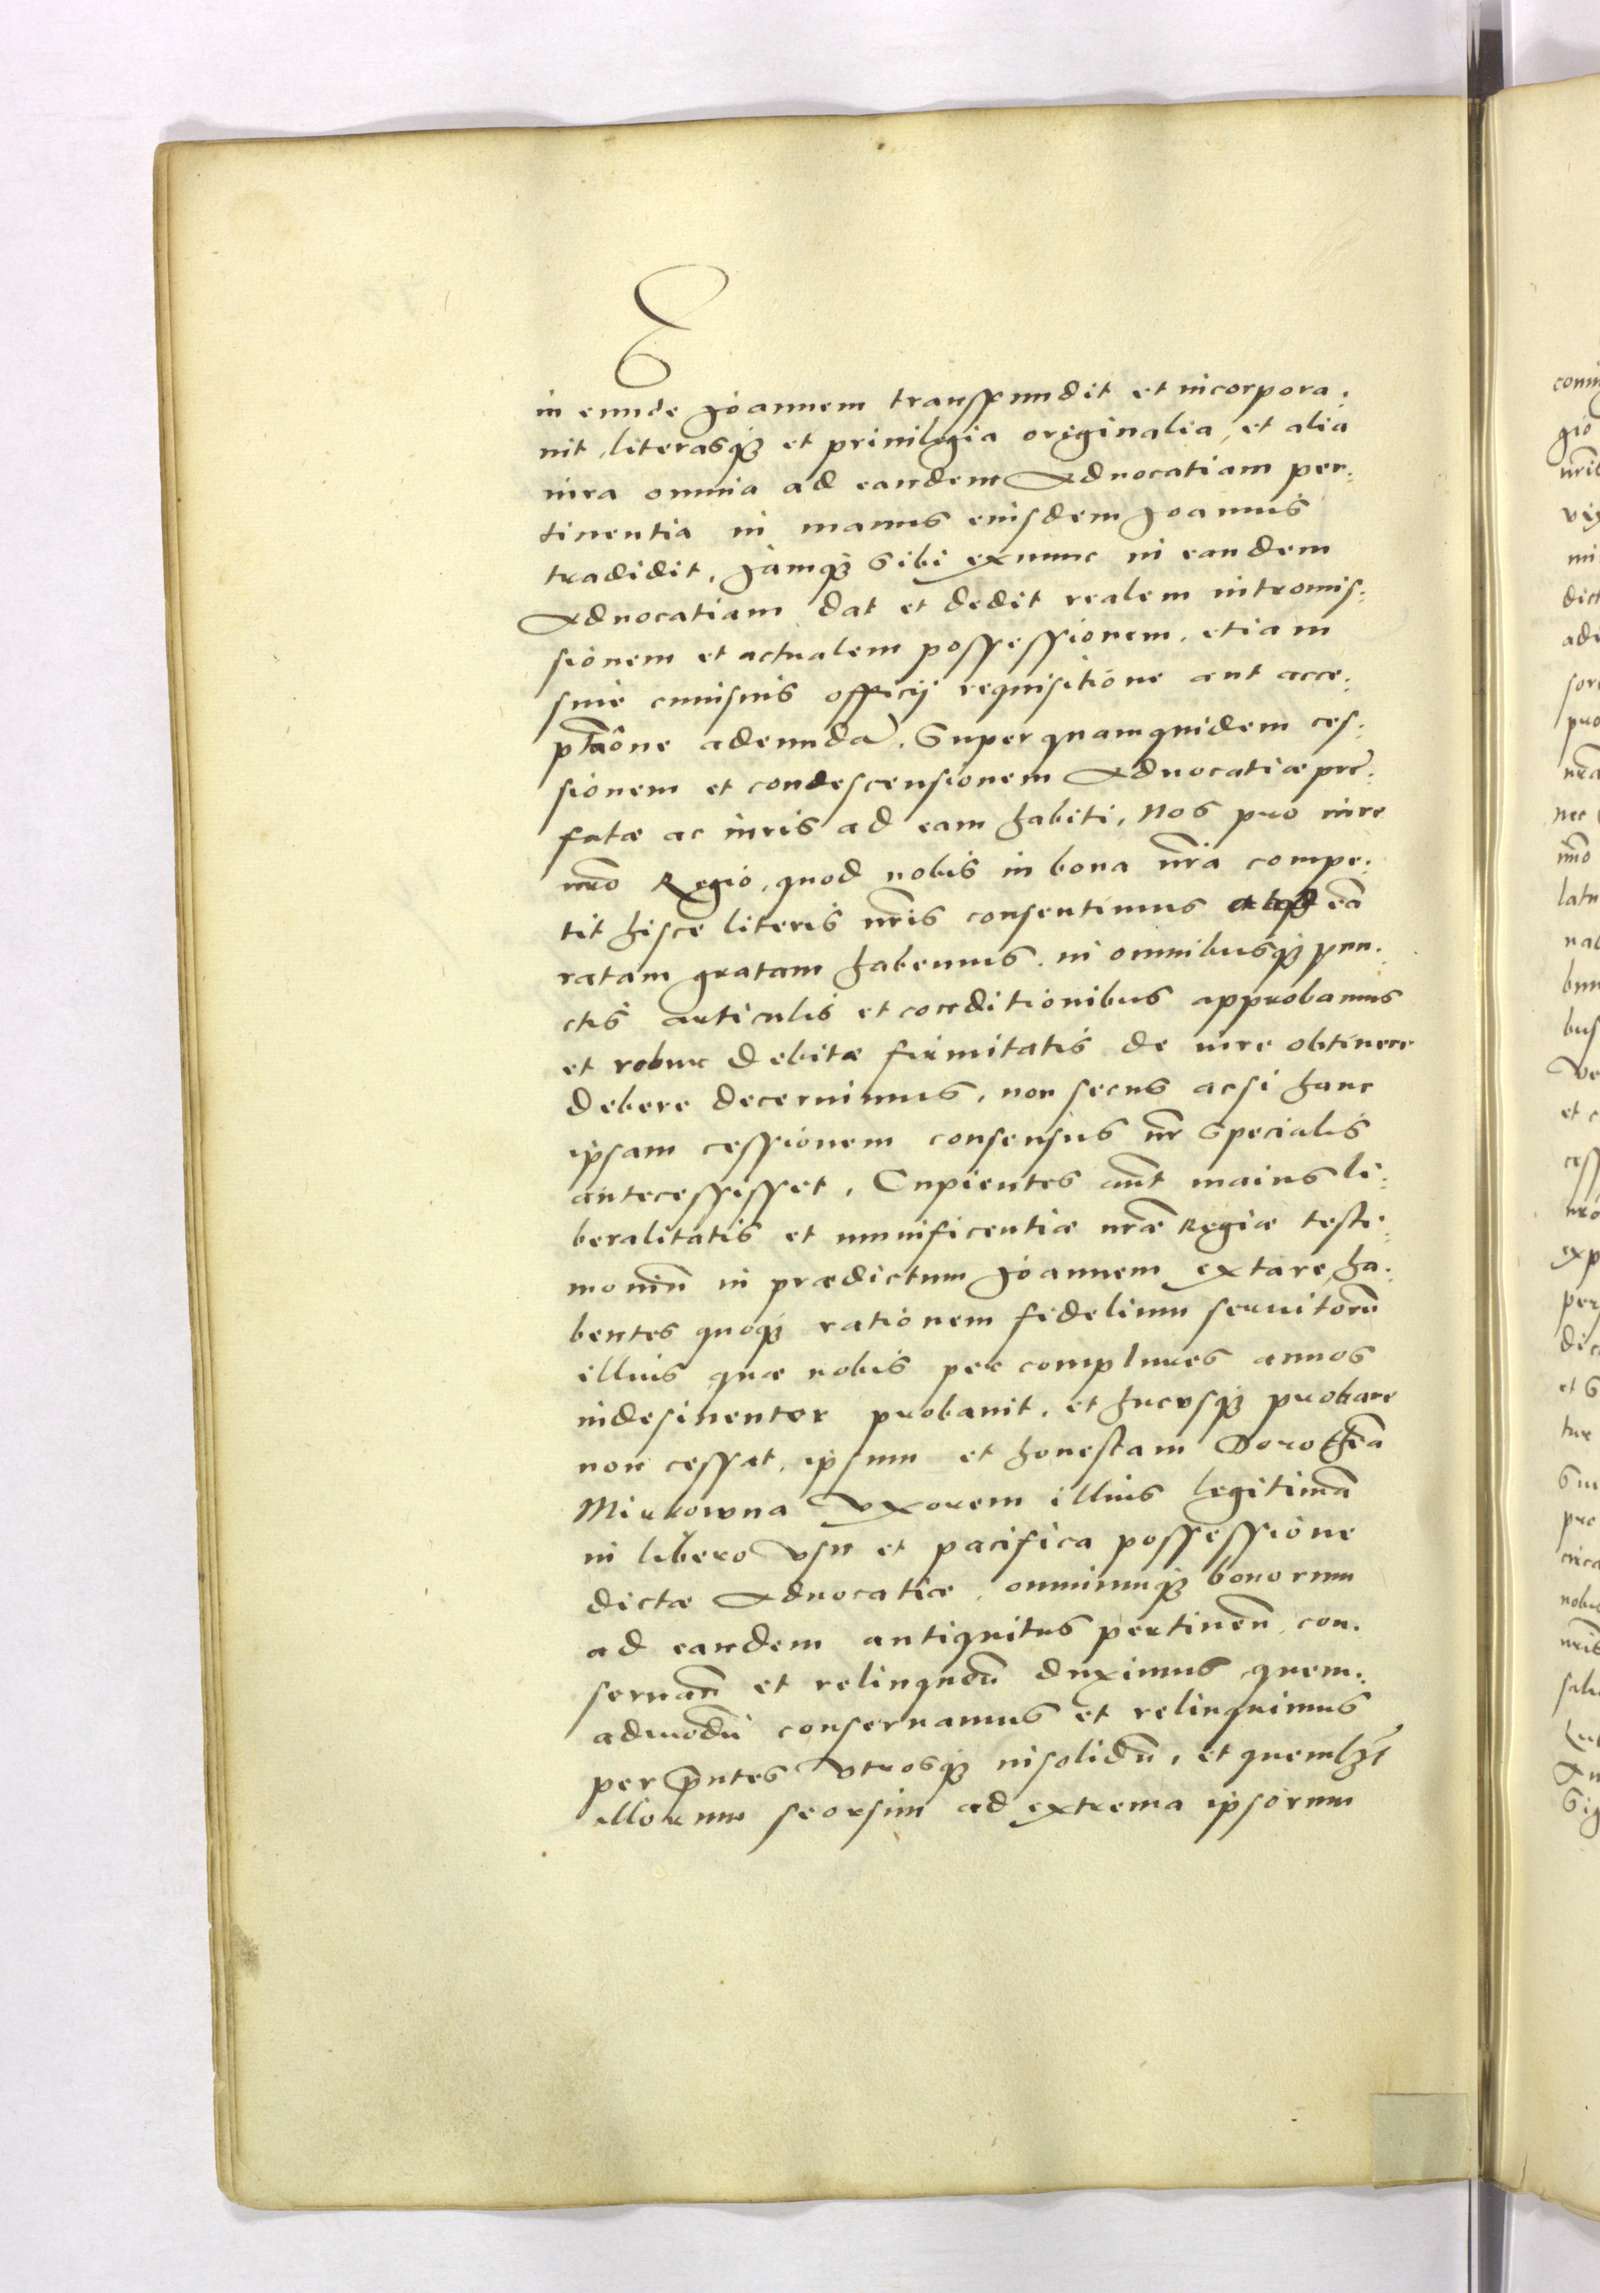 in eunde Joannem transfundit et incorpora.
uit, literasq₃ et priuilegia originalia, et alia
iura omnia ad eandem Aduocatiam per.
tinentia in manus eiusdem Joannis
tradidit, Jamq₃ sibi exnunc in eandem
Aduocatiam dat et dedit realem intromis.
sionem et actualem possessionem, etiam
sine cuiusuis officij requisitione aut acce.
ptaõne adeunda. Super quamquidem ces.
sionem et condescensionem Aduocatiæ præ.
fatæ ac iuris ad eam habiti, Nos pro iure
nr̃o Regio, quod nobis in bona nr̃a compe.
tit hisce literis nr̃is consentimus atq₃ eã
ratam gratam habemus. in omnibusq₃ pun.
ctis articulis et conditionibus approbamus
et robur debitæ firmitatis de iure obtinere
debere decernimus, non secus acsi hanc
ipsam cessionem consensus nr̃ specialis
antecessisset, Cupientes aũt maius li.
beralitatis et munificentiæ nr̃æ Regiæ testi.
moniũ in prædictum Joannem extare, ha.
bentes quoq₃ rationem fidelium seruitorũ
illius quæ nobis per complures annos
indesinenter probauit, et hucusq₃ probare
non cessat, ipsum et honestam Dorotheã
Mirkowna Vxorem illius legitimã
in libero vsu et pacifica possessione
dictæ Aduocatiæ, omniumq₃ bonorum
ad eandem antiquitus pertineñ con.
seruañ et relinqueñ duximus quem.
admodũ conseruamus et relinquimus
per p̃ntes vtrosq₃ insolidũ, et quemlib̃t
illorum seorsim ad extrema ipsorum